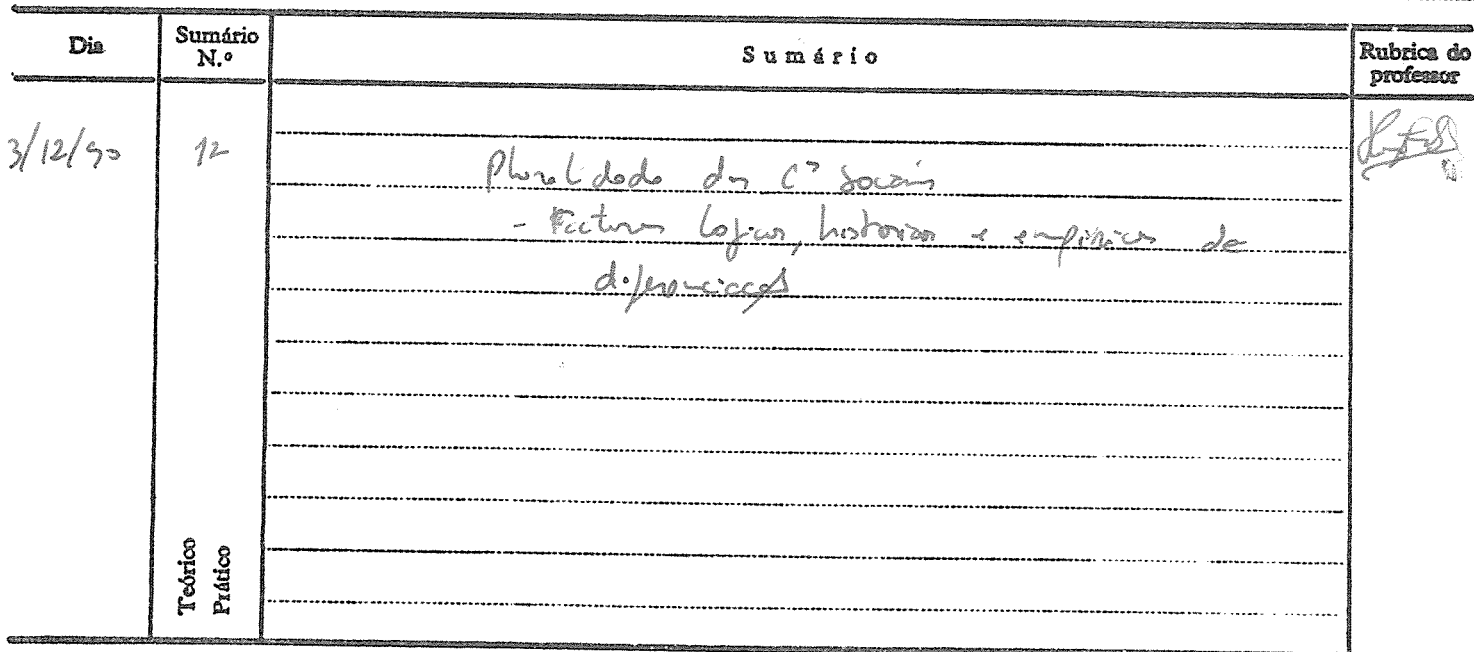 Dia
Sumário N.º
Sumário
Rubrica do professor
3/12/90
12
Pluralidade das C.as Sociais
- Factores logicos, historicos e empiricos de
diferenciação
Teórico
Prático